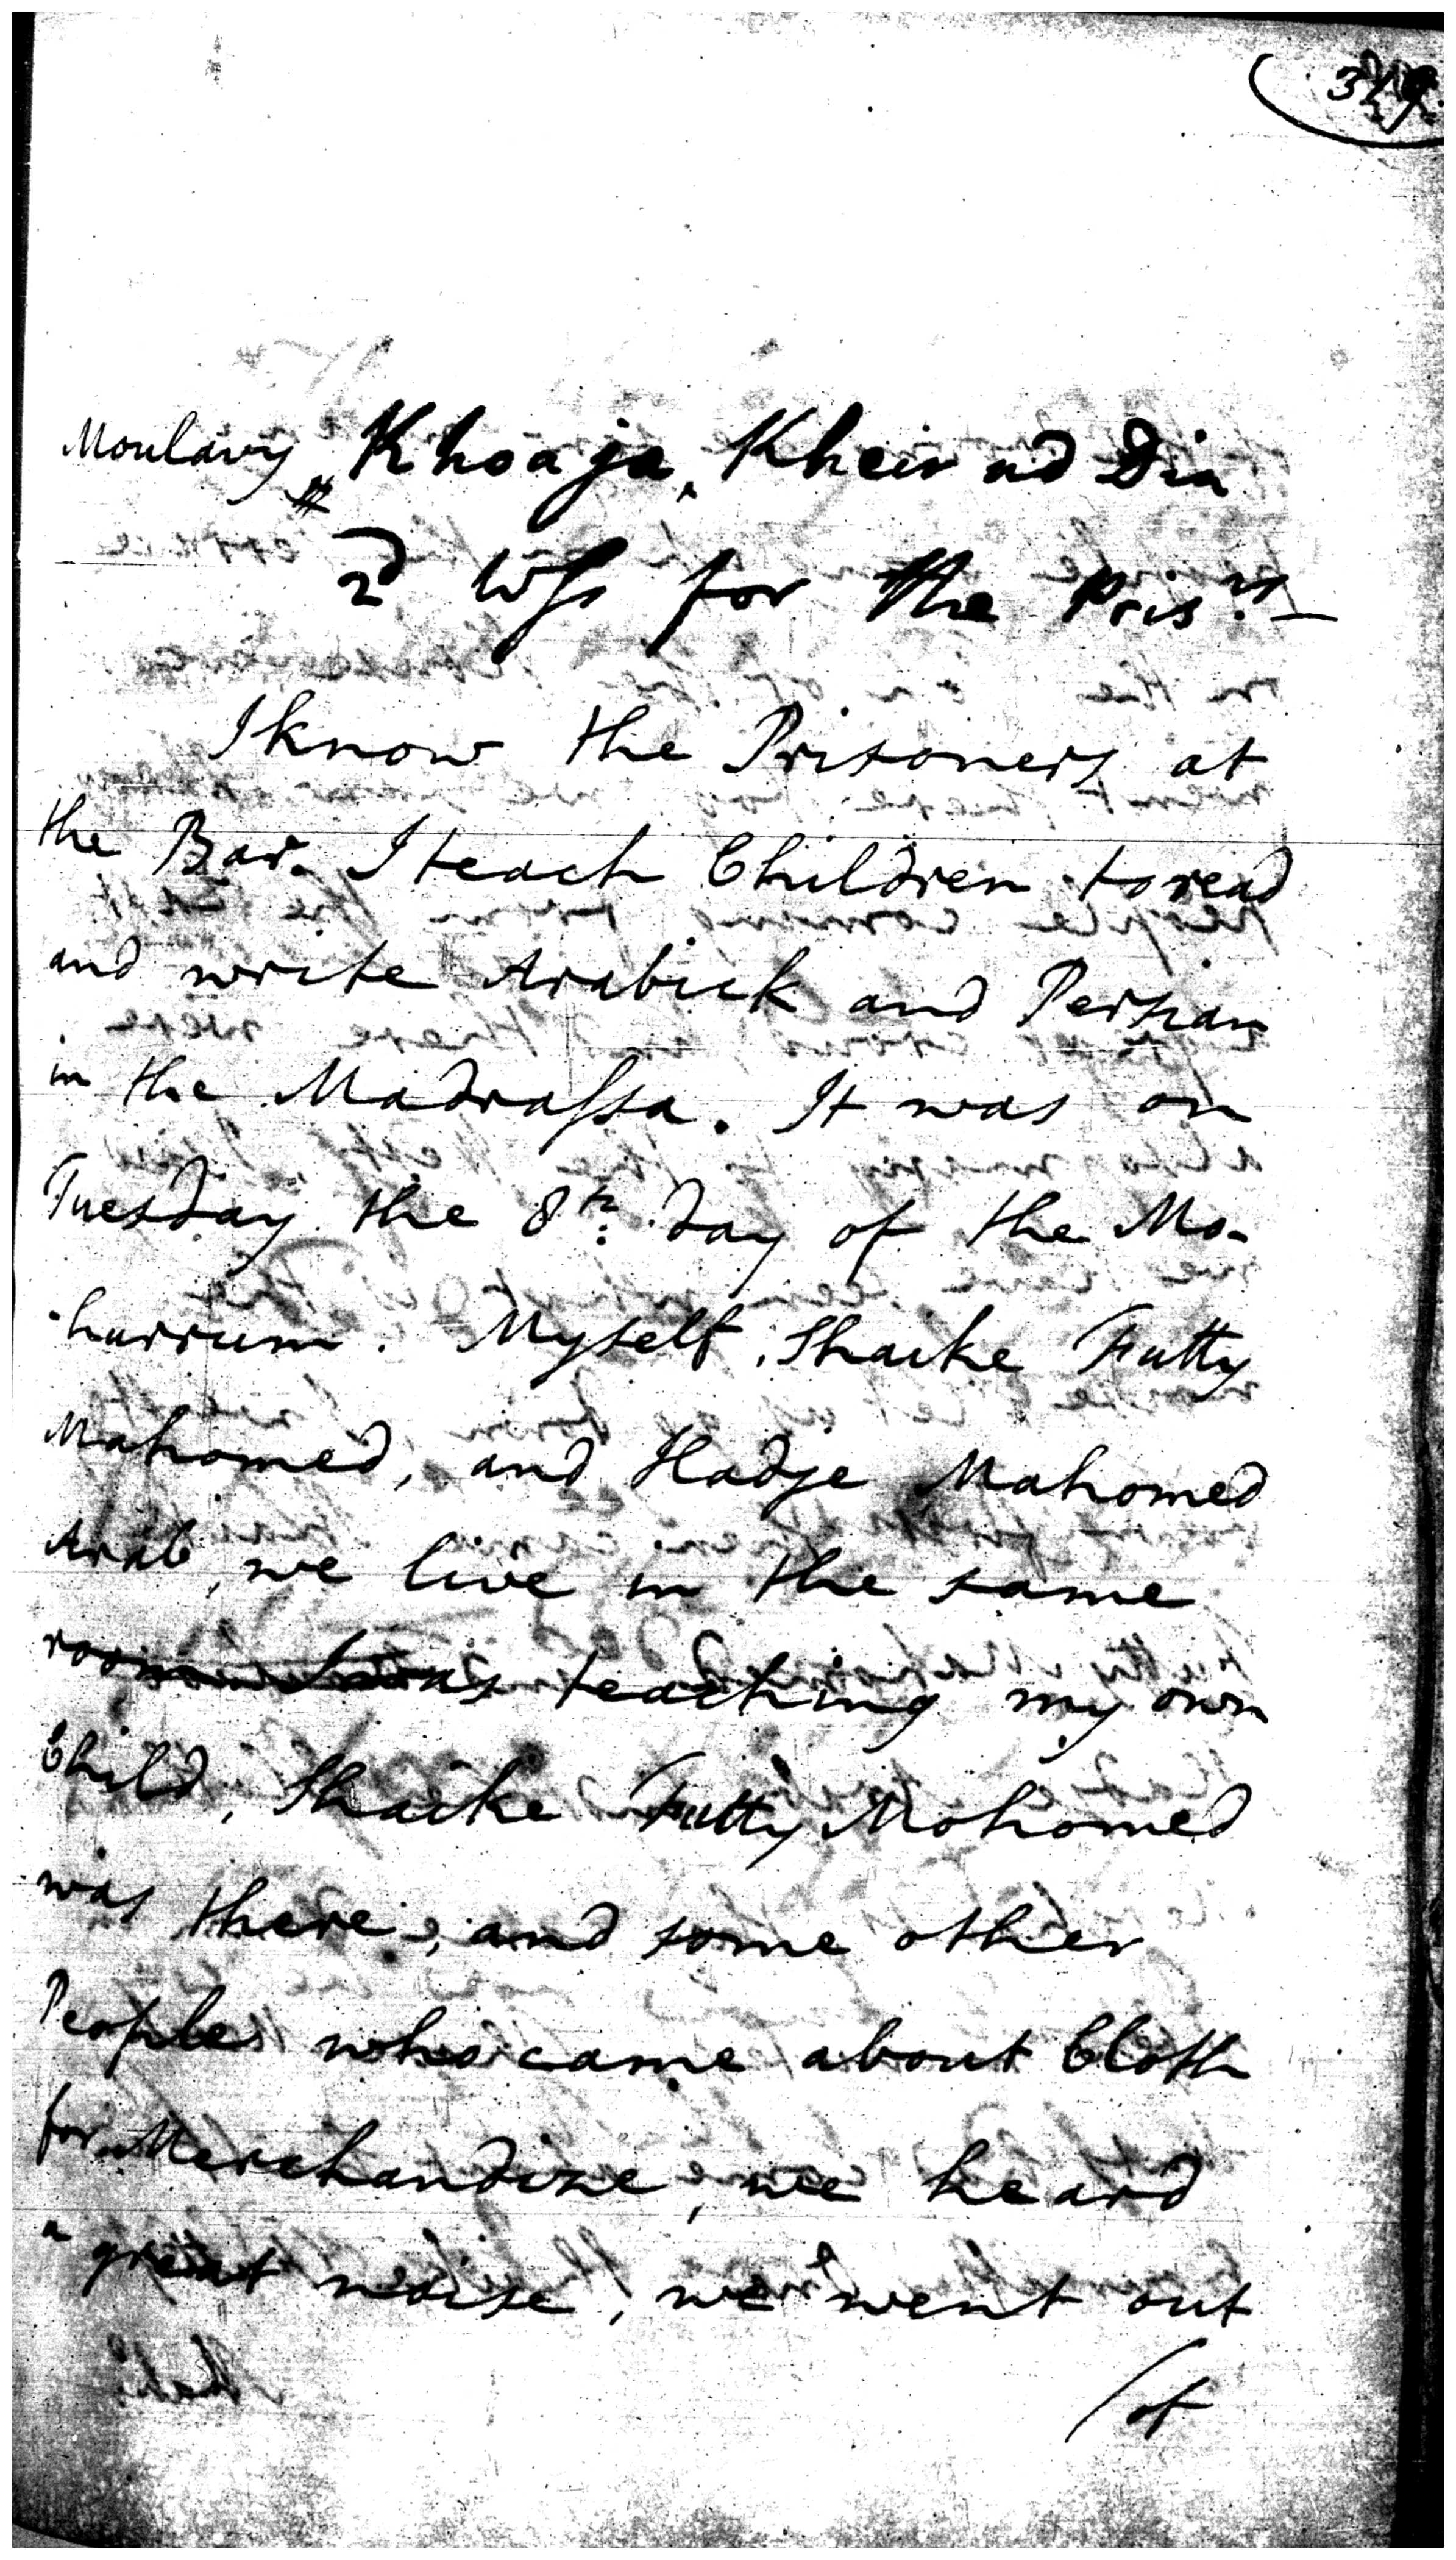 Moulavy Khoaja Kheir ud Din
2d Wss for the Prisrs. —
I know the Prisoners at
the Bar. I teach Children to read
and write Arabick and Persian
in the Madrassa. It was on
Tuesday the 8th. day of the Mo-
-hurrum. Myself, Shaike Futty
Mahomed, and Hadje Mahomed
Arab, we live in the same
room I was teaching my own
Child, Shaike Futty Mohomed
was there, and some other
People who came about Cloth
for Merchandize, we heard
a great noise, we went out
(of